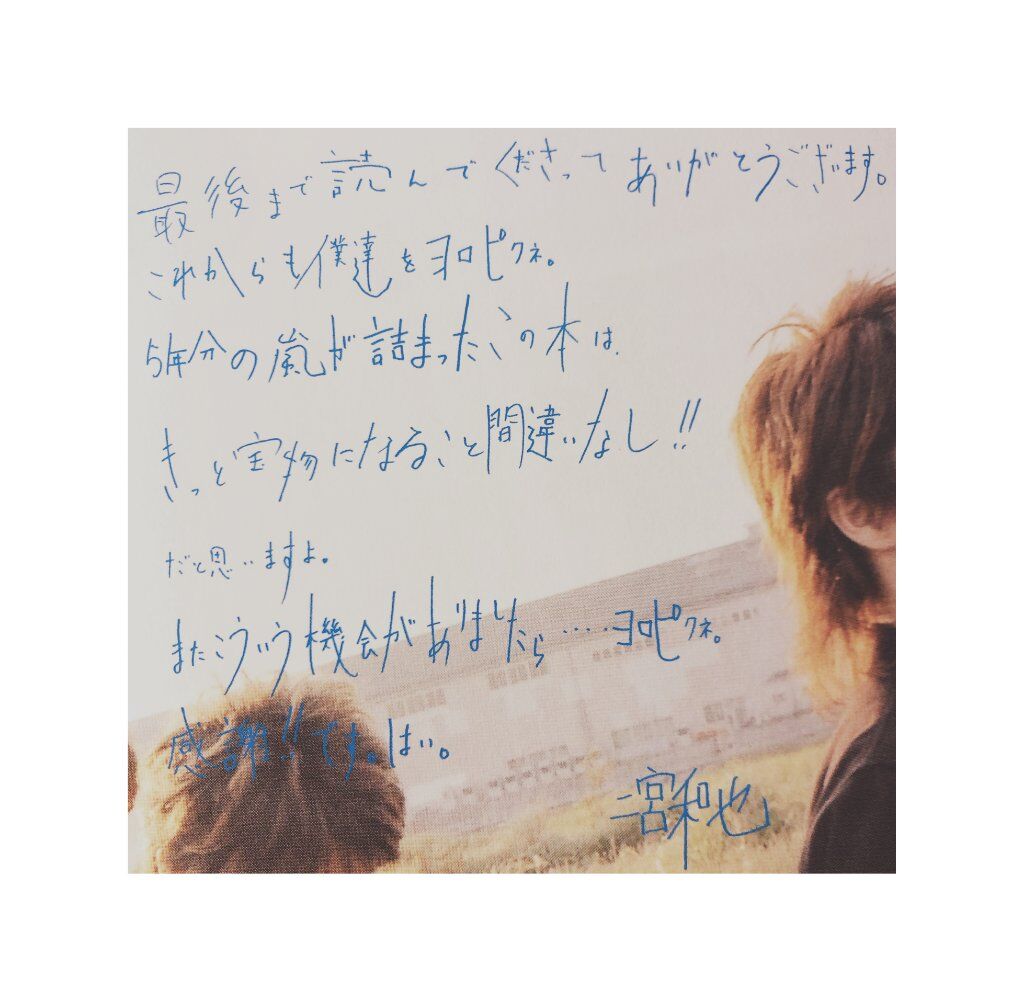 最後まで読んでくださってありがとうございます。
これからも僕達をヨロピクネ。
5年分の嵐が詰まったこの本は、
きっと宝物になること間違いなし!!
だと思いますよ。
またこういう機会がありましたら‥‥‥ヨロピクネ。
感謝!!です。はい。
二宮和也